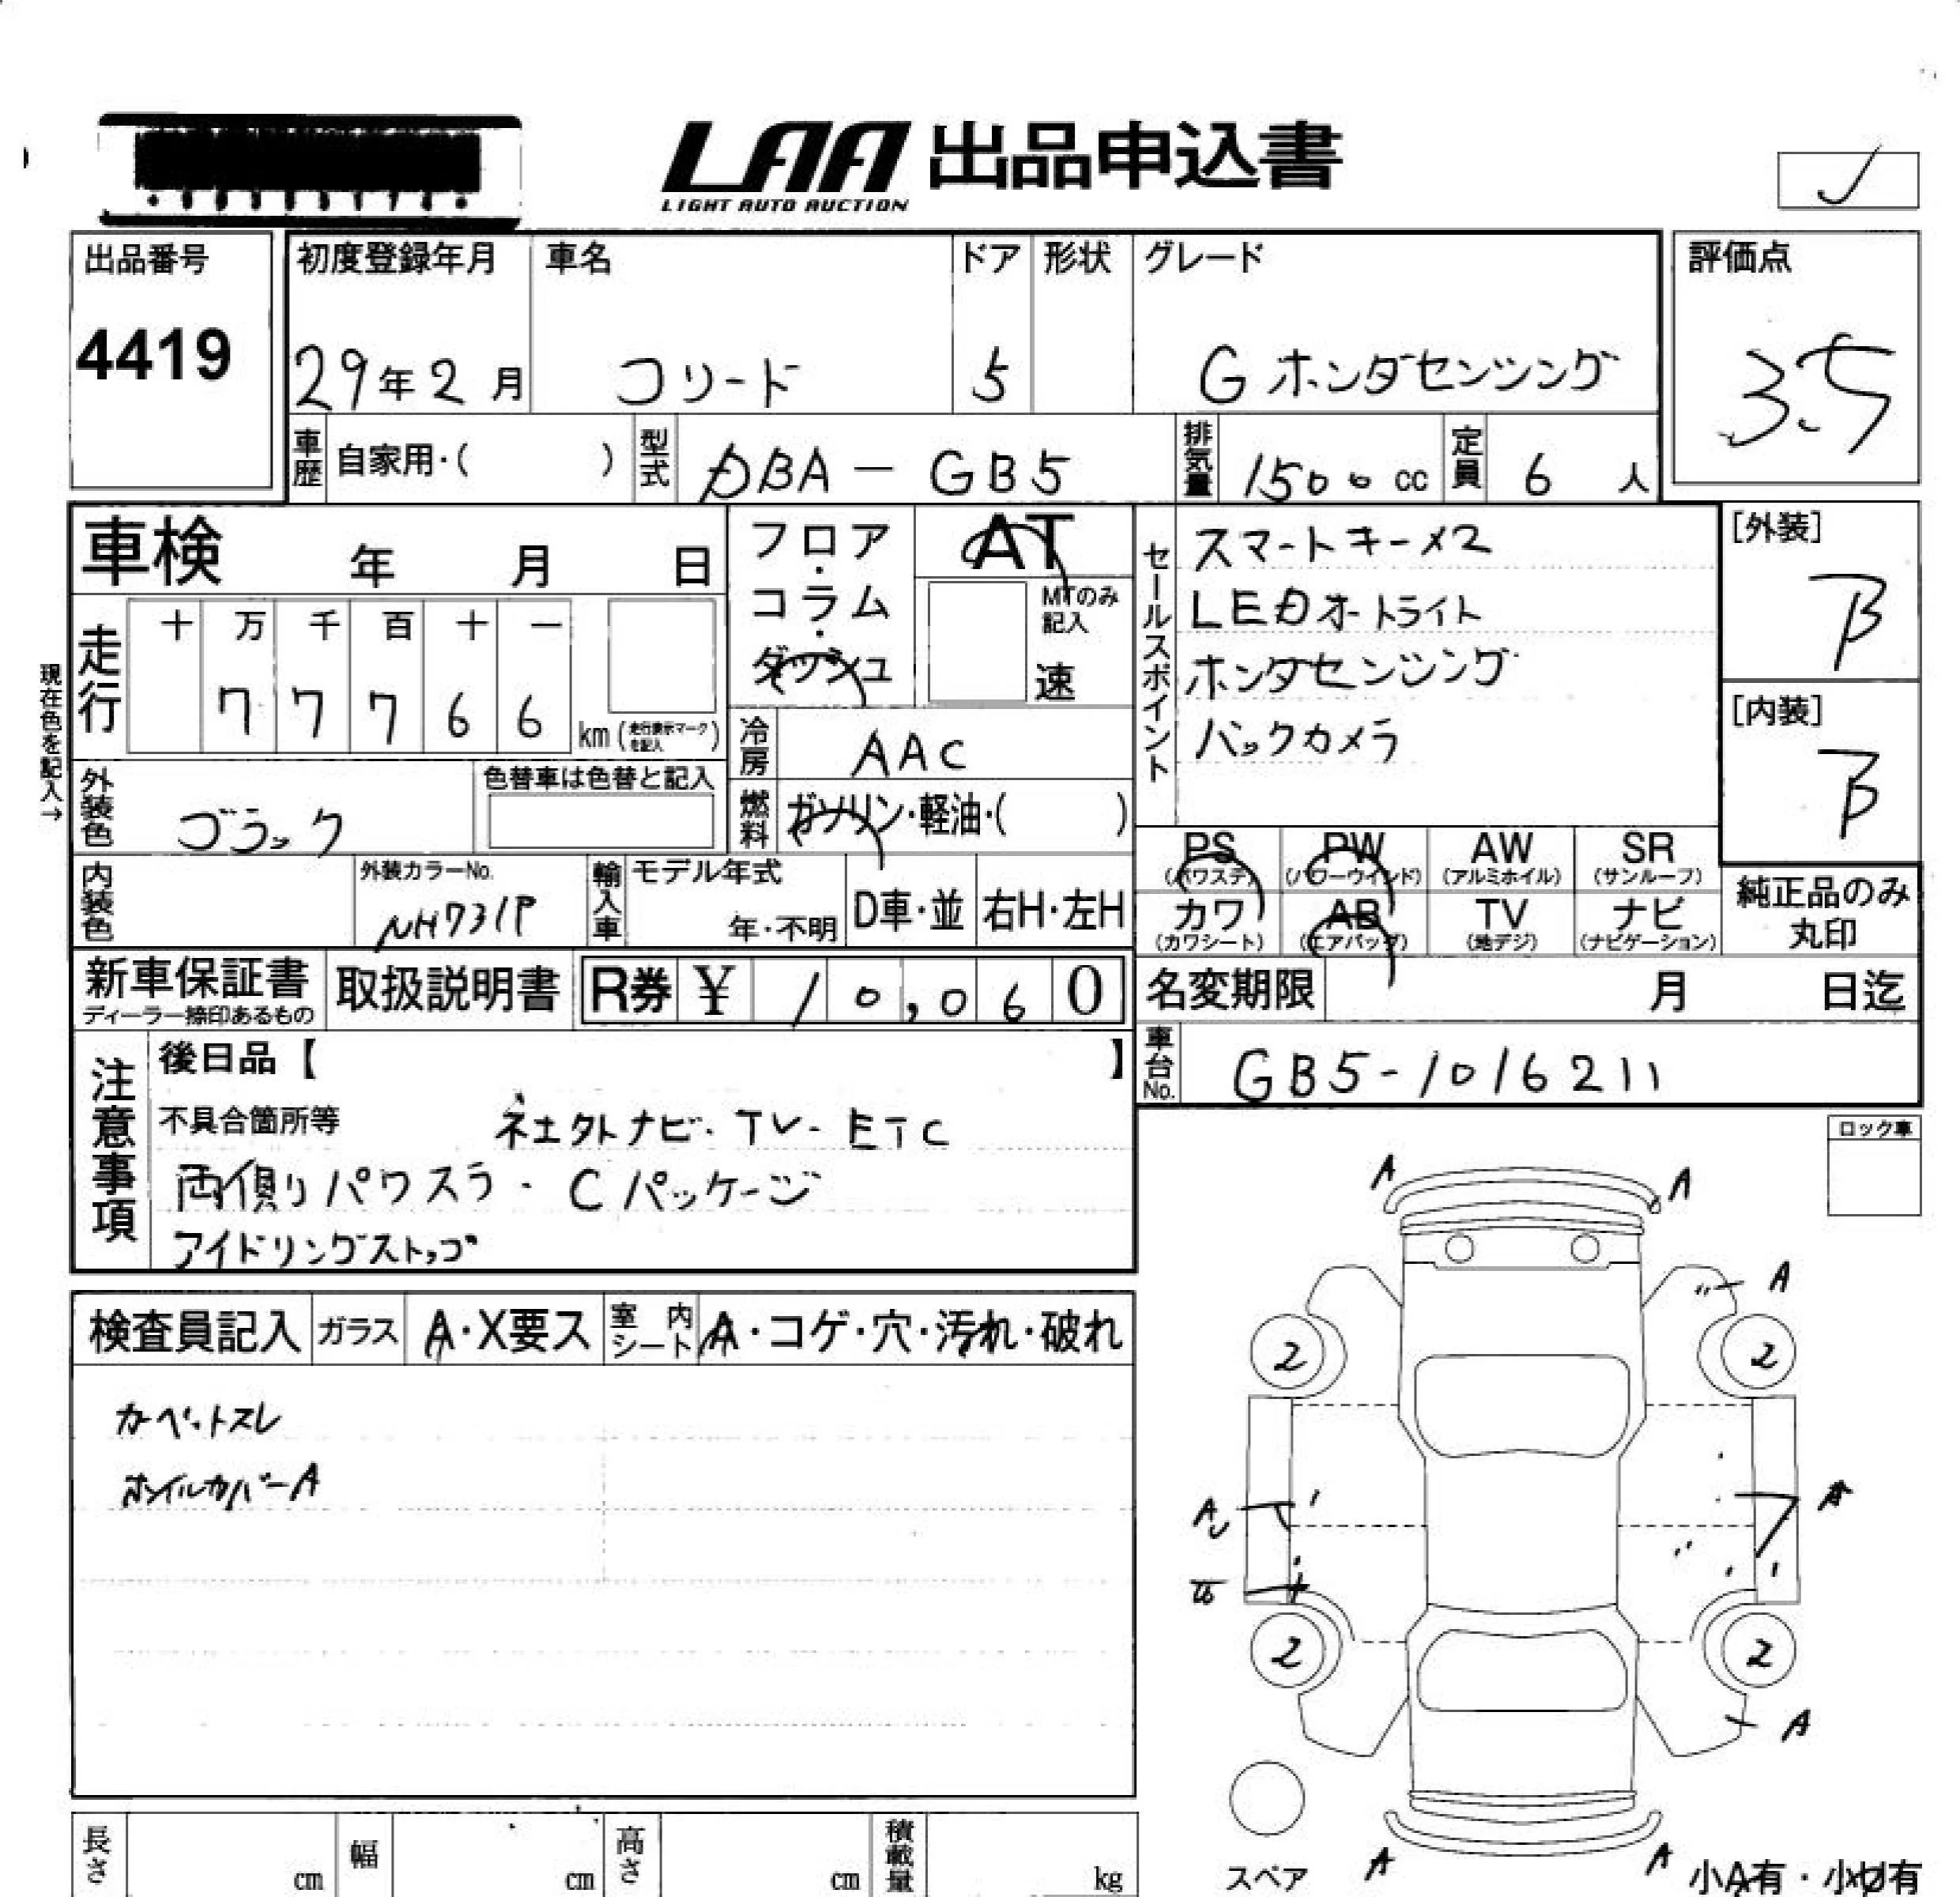 LAA 出品申込書
LIGHT AUTO AUCTION
出品番号 初度登録年月 車名 ドア 形状 グレード 評価点
4419 29年2月 フリード 5 G ホンダセンシング 3.5
車歴 自家用・( ) 型式 DBA-GB5 排気量 1500cc 定員 6人
車検 年 月 日
フロア・コラム・ダッシュ
AT
MTのみ記入
速
走行 十 万 千 百 十 一
7 7 7 6 6 km (走行表示マークを記入)
現在色を記入→
冷房 AAC
燃料 ガソリン・軽油・( )
外装色 ブラック 色替車は色替と記入
内装色 外装カラーNo. NH731P 輸入車 モデル年式 年・不明 D車・並 右H・左H
セールスポイント
スマートキー×2
LEDオートライト
ホンダセンシング
バックカメラ
[外装]
B
[内装]
B
PS (パワステ) PW (パワーウインド) AW (アルミホイル) SR (サンルーフ)
カワ (カワシート) AB (エアバッグ) TV (地デジ) ナビ (ナビゲーション)
純正品のみ丸印
新車保証書 ディーラー捺印あるもの 取扱説明書 R券 ¥ 10,060
名変期限 月 日迄
車台No. GB5-1016211
注意事項
後日品【 】
不具合箇所等 社外ナビ・TV・ETC
両側パワスラ・Cパッケージ
アイドリングストップ
ロック車
検査員記入 ガラス A・X要ス 室内シート A・コゲ・穴・汚れ・破れ
カーペットスレ
ホイルカバーA
A A
A
2 2
A
2 2
A
スペア
A A
小A有・小U有
長さ cm 幅 cm 高さ cm 積載量 kg